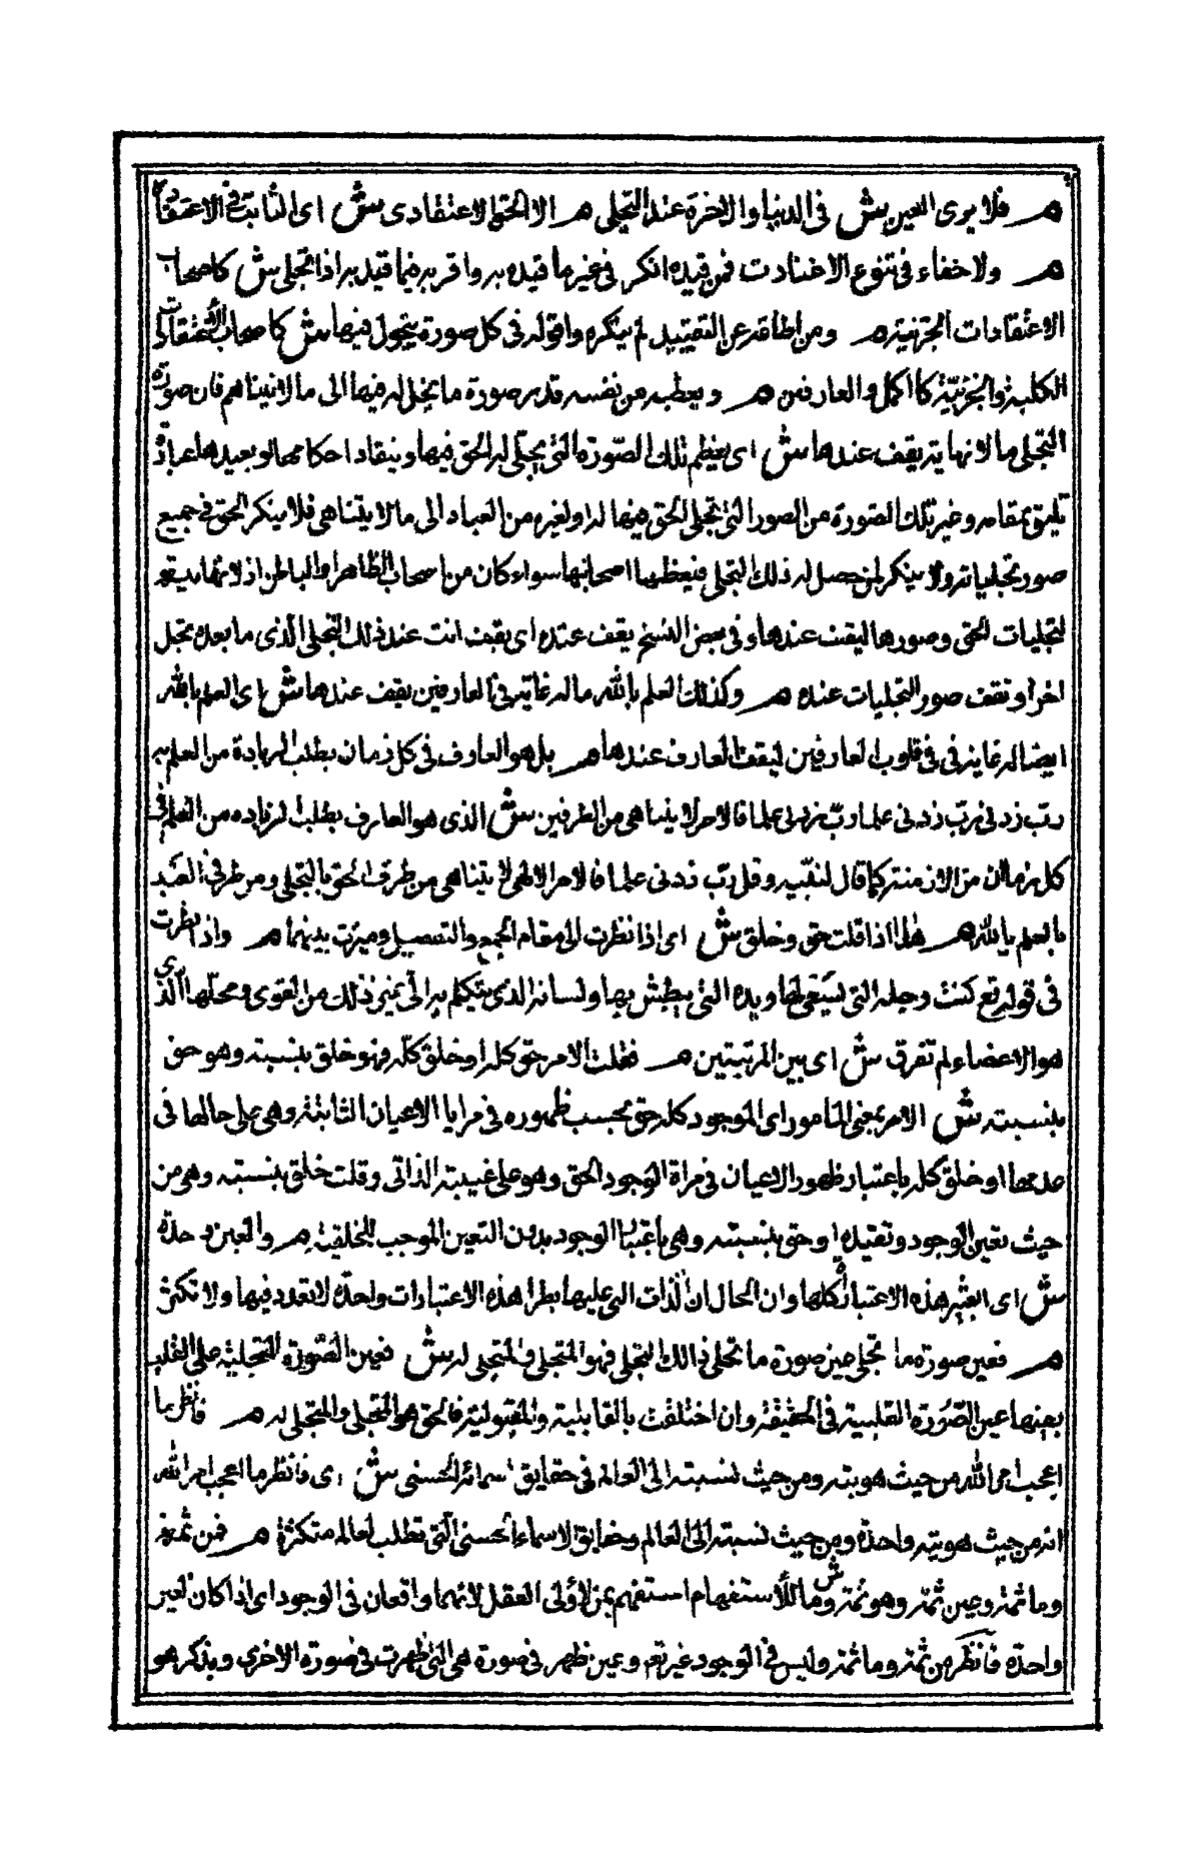 م فلا يرى العين ش فى الدنيا والاخرة عند التجلى م الا الحق الاعتقادى ش اى الثابت فى الاعتقاد
م ولا خفاء فى تنوع الاعتقادات فمن قيده انكر فى غير ما قيده به واقر به فيما قيد به اذا تجلى ش كاصحاب
الاعتقادات الجزئية م ومن اطلقه عن التقييد لم ينكره واقر له فى كل صورة يتحول فيها ش كاصحاب الاعتقادات
الكلية والجزئية كالكمل والعارفين م ويعطيه من نفسه قدر صورة ما تجلى له فيها الى ما لا يتناهى فان صورة
التجلى ما لا نهاية يقف عندها ش اى يعظم تلك الصورة التى تجلى له الحق فيها وينقاد احكامها ويعبدها عبادة
تليق بمقامه وغير تلك الصورة من الصور التى تجلى الحق فيها له او لغيره من العباد الى ما لا يتناهى فلا ينكر الحق فى جميع
صور تجلياته ولا ينكر لمن حصل له ذلك التجلى فيعظمها اصحابها سواء كان من اصحاب الظاهر او الباطن اذ لا نهاية
لتجليات الحق وصورها ليقف عندها وفى بعض النسخ يقف عنده اى يقف انت عند ذلك التجلى الذى ما بعده تجل
اخر او تقف صور التجليات عنده م وكذلك العلم بالله ما له غاية فى العارفين يقف عندها ش اى العلم بالله
ايضا له غاية فى فى قلوب العارفين ليقف العارف عندها م بل هو العارف فى كل زمان يطلب الزيادة من العلم به
رب زدنى رب زدنى علما رب زدنى علما فالامر لا يتناهى من الطرفين ش الذى هو العارف يطلب الزياده من العلم فى
كل زمان من الازمنة كما قال لنبيه وقل رب زدنى علما فالامر الالهى لا يتناهى من طرف الحق بالتجلى ومن طرف العبد
بالعلم بالله م هذا اذا قلت حق وخلق ش اى اذا نظرت الى مقام الجمع والتفصيل وميزت بينهما م واذا نظرت
فى قوله تع كنت رجله التى يسعى بها ويده التى يبطش بها ولسانه الذى يتكلم به الى غير ذلك من القوى ومحلها الذى
هو الاعضاء لم تفرق ش اى بين المرتبتين م فقلت الامر حق كله او خلق كله فهو خلق بنسبته وهو حق
بنسبته ش الامر بمعنى المامور اى الموجود كله حق بحسب ظهوره فى مرايا الاعيان الثابتة وهى على حالها فى
عدمها او خلق كله باعتبار ظهور الاعيان فى مراة الوجود الحق وهو على غيبته الذاتى وقلت خلق بنسبته وهى من
حيث تعين الوجود وتقيده او حق بنسبته وهى باعتبار الوجود بدون التعين الموجب للخلقية م والعين واحدة
ش اى اعتبر هذه الاعتبارات كلها وان الحال ان الذات التى عليها يطرا هذه الاعتبارات واحدة لا تعدد فيها ولا تكثر
م فعين صورة ما تجلى عين صورة ما تجلى ذلك التجلى فهو المتجلى والمتجلى له ش فعين الصورة المتجلية على القلب
بعينها عين الصورة القلبية فى الحقيقة وان اختلفت بالقابلية والمقبولية فالحق هو المتجلى والمتجلى له م فانظر ما
اعجب امر الله من حيث هويته ومن حيث نسبته الى العالم فى حقايق اسمائه الحسنى ش اى فانظر ما اعجب امر الله
انه من حيث هويته واحدة ومن حيث نسبته الى العالم وحقايق الاسماء الحسنى التى تطلب العالم متكثرة م فمن ثمة
وما ثمة وعين ثمة وهو ثمة ش وما للاستفهام استفهم بمن لاولى العقل لانهما واقعان فى الوجود اى اذا كان العين
واحدة فانظر من ثمة وما ثمة وليس فى الوجود غيره تع وعين ظهر فى صورة هى التى ظهرت فى صورة الاخرى ويذكر هو